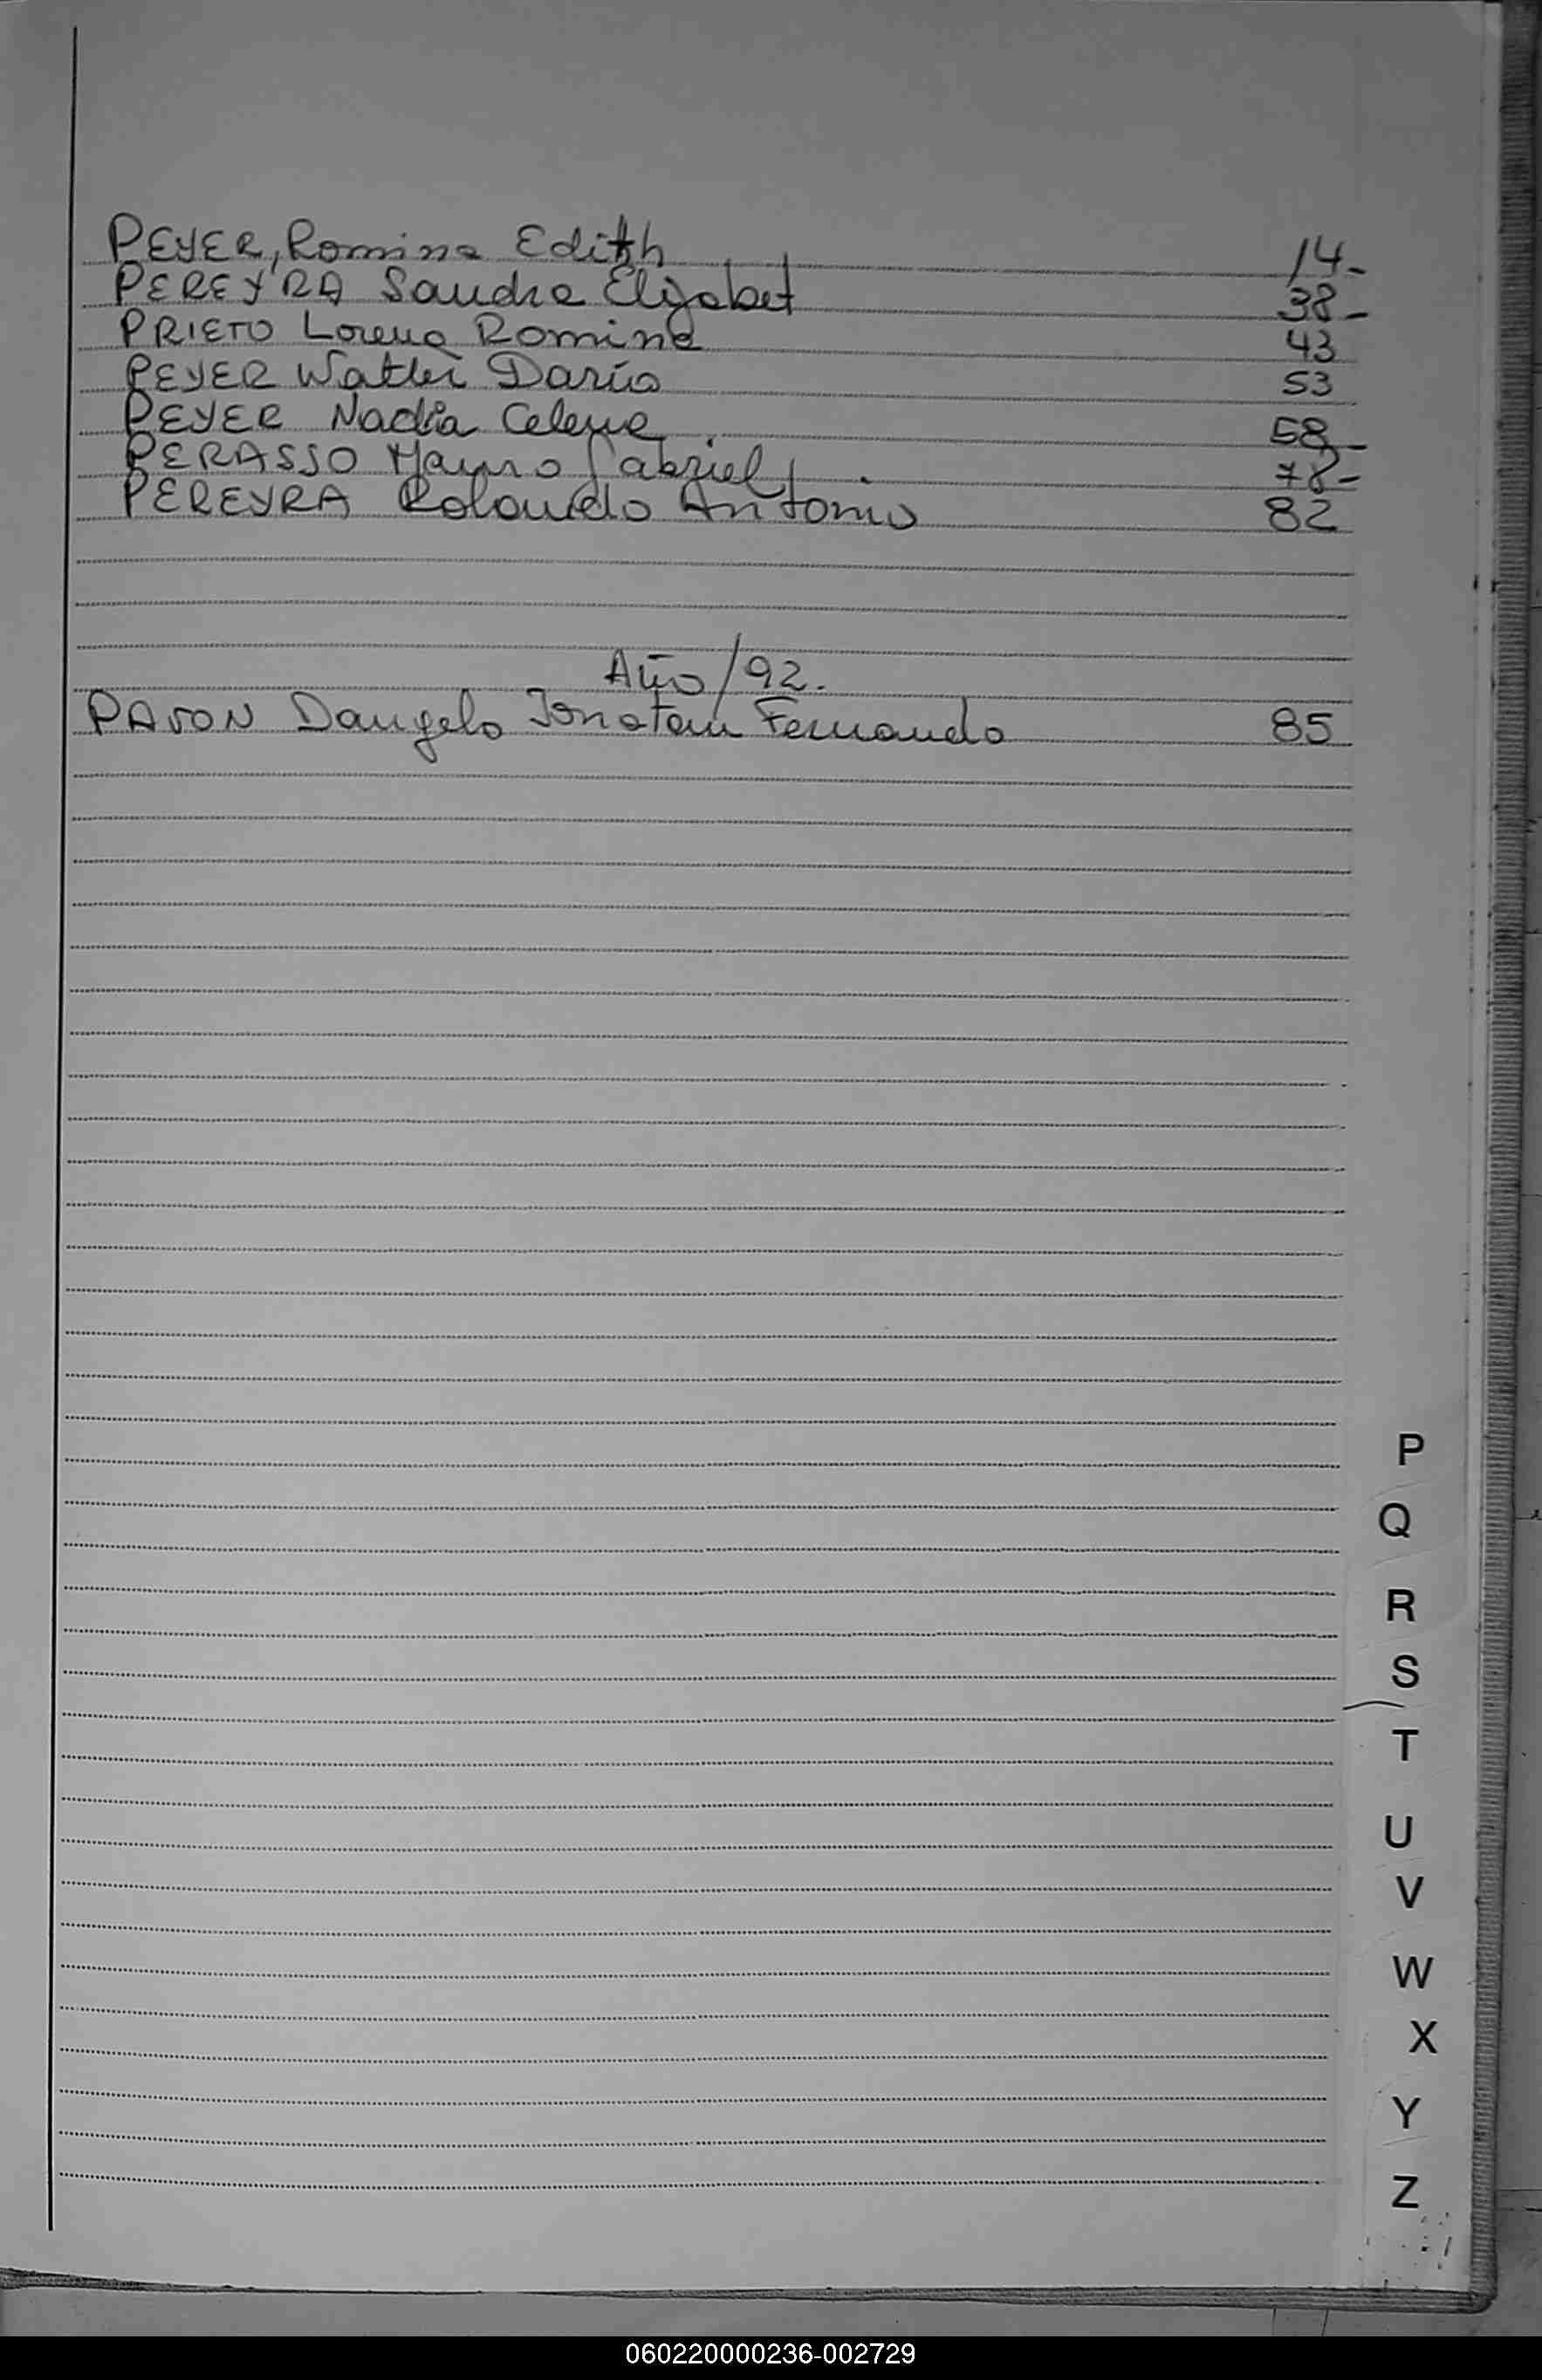 PEYER, Romina Edith 14-
PEREYRA Sandra Elizabet 38-
PRIETO Lorena Romina 43
PEYER Walter Darío 53
PEYER Nadia Celene 58-
PERASSO Mauro Gabriel 78-
PEREYRA Rolando Antonio 82
Año/92.
PAVON Dangelo Jonatan Fernando 85
P
Q
R
S
T
U
V
W
X
Y
Z
060220000236-002729